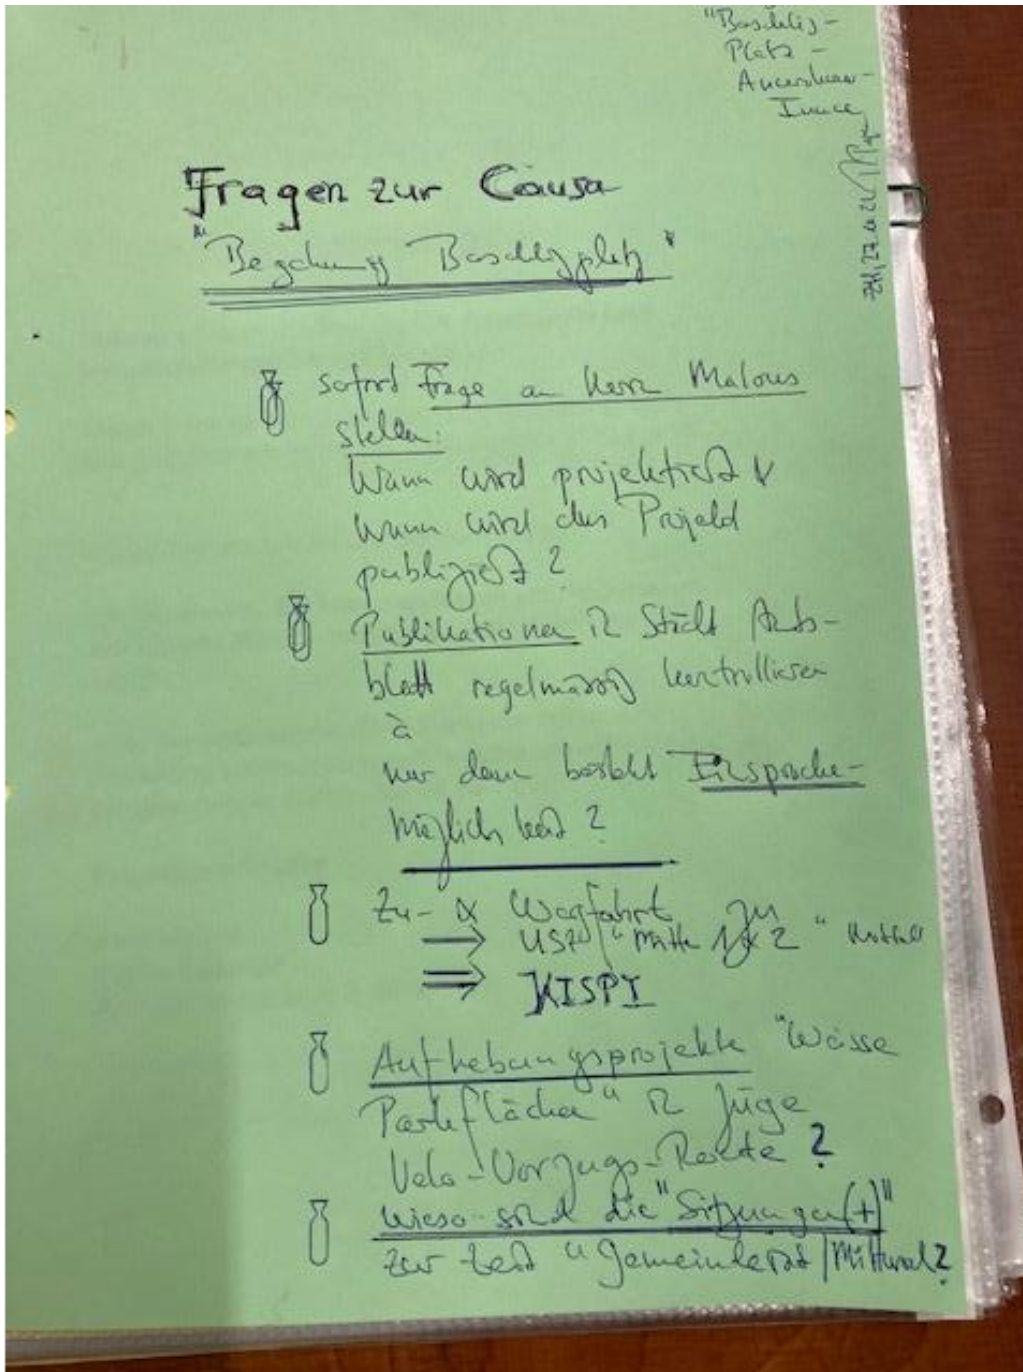 "Baschlig-
Platz -
Fragen zur Causa
"Begehung Baschligplatz"
sofort Frage an Herrn
stellen:
Wann wird projektiert &
wann wird das Projekt
publiziert?
Publikationen in Städt Amts-
blatt regelmässig kontrollieren
à
nur dann besteht Einsprache-
möglichkeit?
Zu- & Wegfahrt zu
USZ "Mitte 1 & 2"
KISPI
Aufhebungsprojekte "Weisse
Parkflächen" in Züge
Velo-Vorzugs-Route?
wieso sind die "Sitzungen(+)"
zur Zeit